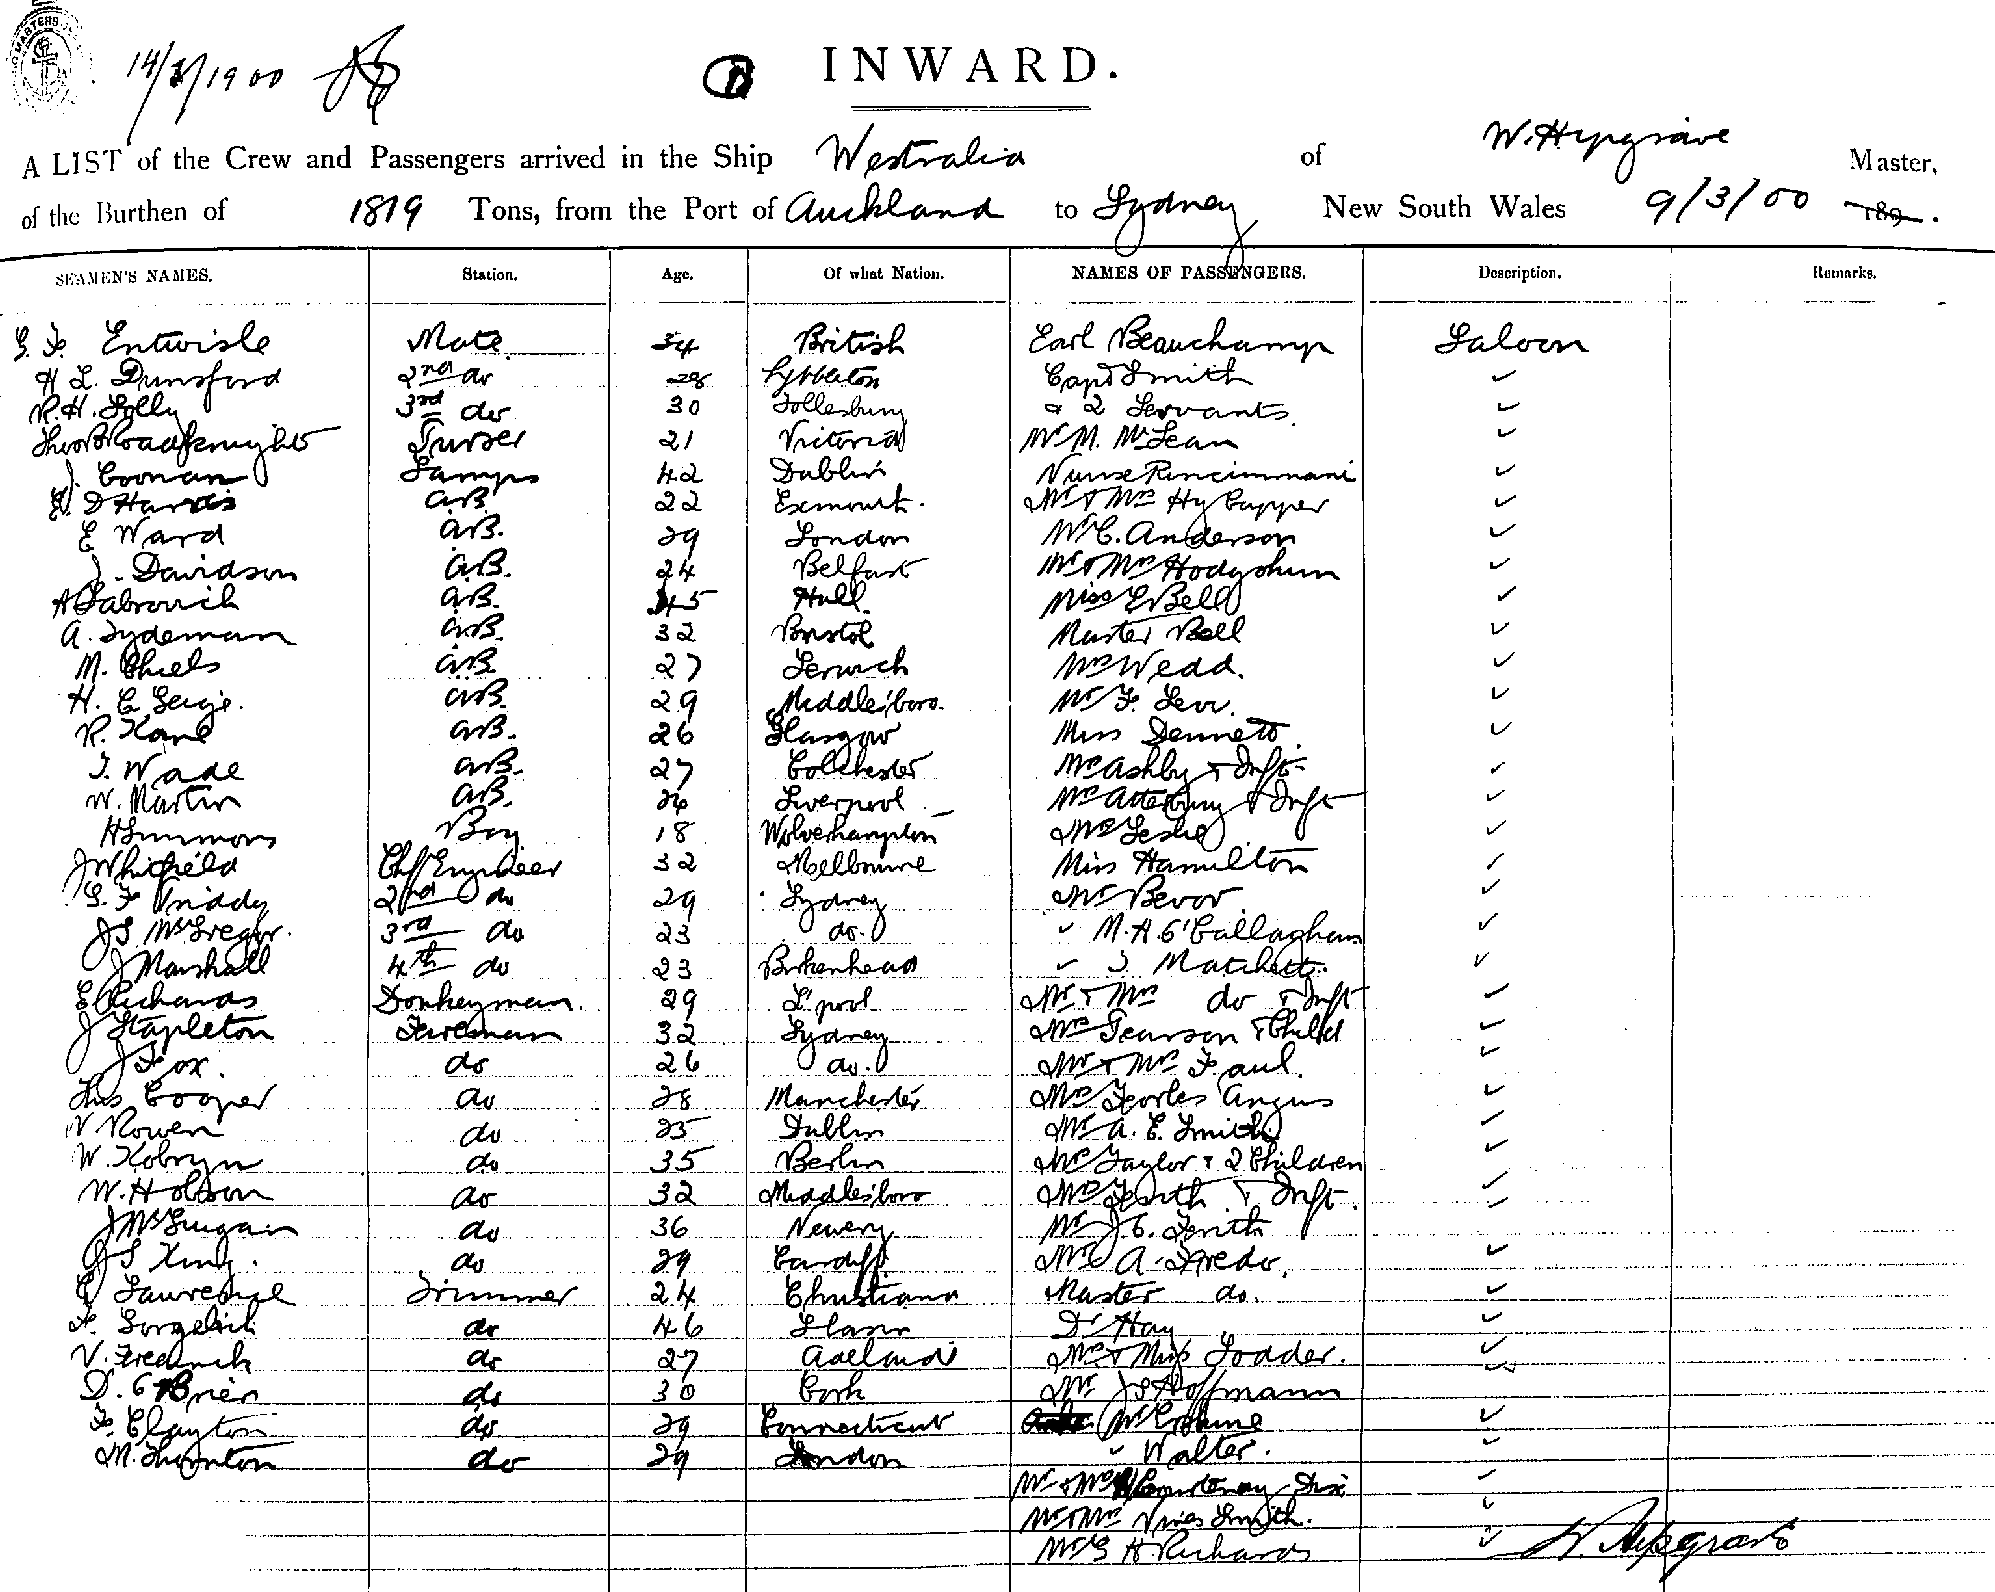 MASTERS
14/3/1900
INWARD.
A LIST of the Crew and Passengers arrived in the Ship Westralia of W. Hipgrave Master,
of the Burthen of 1819 Tons, from the Port of Auckland to Sydney New South Wales 9/3/00 189 .
SEAMEN'S NAMES. Station. Age. Of what Nation. NAMES OF PASSENGERS. Description. Remarks.
G. F. Entwisle Mate 34 British Earl Beauchamp Saloon
H L. Dunsford 2nd do 28 Capt Smith ✓
R. H. Jolly 3rd do 30 Tollesbury & 2 Servants ✓
Theo Broadknight Purser 21 Victoria Mr M. McLean ✓
J. Coonan Lamps 42 Dublin Nurse ✓
D Harris A.B. 22 Exmouth. Mr & Mrs Hy Cupper ✓
E Ward A.B. 29 London Mr C. Anderson ✓
J. Davidson A.B. 24 Belfast Mr & Mrs Hodgshun ✓
A.B. 45 Hull Miss E Bell ✓
A. Tydeman A.B. 32 Bristol Master Bell ✓
M. Shiels A.B. 27 Lerwick Mrs Wedd. ✓
H. C A.B. 29 Middlesboro. Mr F. Levi. ✓
R. Kane A.B. 26 Glasgow Miss Dennett ✓
J. Wade A.B. 27 Colchester Mrs Ashby & Inft ✓
W. Martin A.B. 26 Liverpool Mrs Atterbury & Inft ✓
H Simmons Boy 18 Wolverhampton Mrs Leslie ✓
J Whitfield Chf Engineer 32 Melbourne Miss Hamilton ✓
G. F Priddy 2nd do 29 Sydney Mr Bevor ✓
J S. McGregor. 3rd do 23 do. ✓ M. A. O'Callaghan ✓
J Marshall 4th do 23 Birkenhead ✓ J. Matchett. ✓
E Richards Donkeyman. 29 L'pool Mr & Mrs do & Inft ✓
J Stapleton Fireman 32 Sydney Mrs Pearson & Child ✓
J Fox. do 26 do. Mr & Mrs Faul. ✓
Ths Cooper do 28 Manchester Angus ✓
N Rowen do 25 Dublin Mr A. E. Smith ✓
W. Kobryn do 35 Berlin Mrs Taylor & 2 Children ✓
W. Hobson do 32 Middlesboro Mrs & Inft. ✓
J McGuigan do 36 Newery Mr J. C. ✓
J S King. do 29 Cardiff A. ✓
Trimmer 24 Christiana Master do. ✓
F. do 46 Dr Hay ✓
V. Frederick do 27 Adelaide Mr & Miss Lodder. ✓
D. O'Brien do 30 Cork Mr J S Hoffmann ✓
F. Clayton do 29 Connecticut Mr ✓
M. Thornton do 29 London ✓ Walter. ✓
Mr & Mrs Courtenay Dix ✓
Mr & Mrs Vives Smith. ✓
Mr G H Richards ✓ W. Hipgrave